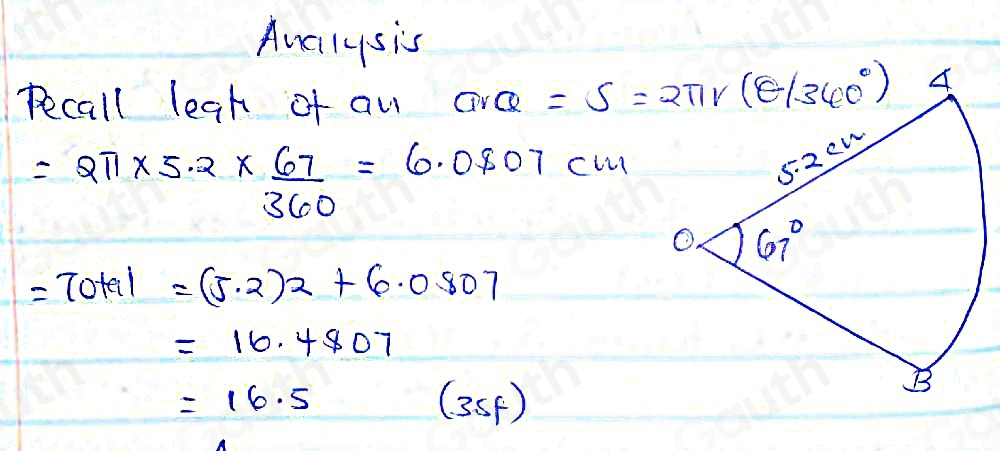 Analysis
Recall legth of an arc = S = 2πr (θ/360°)
= 2π × 5.2 × 67/360 = 6.0807 cm
= Total = (5.2)2 + 6.0807
= 16.4807
= 16.5 (3sf)
A
5.2 cm
O 67°
B